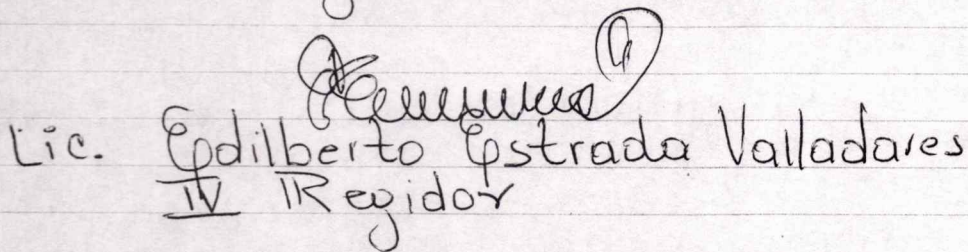 Lic. Edilberto Estrada Valladares
IV Regidor